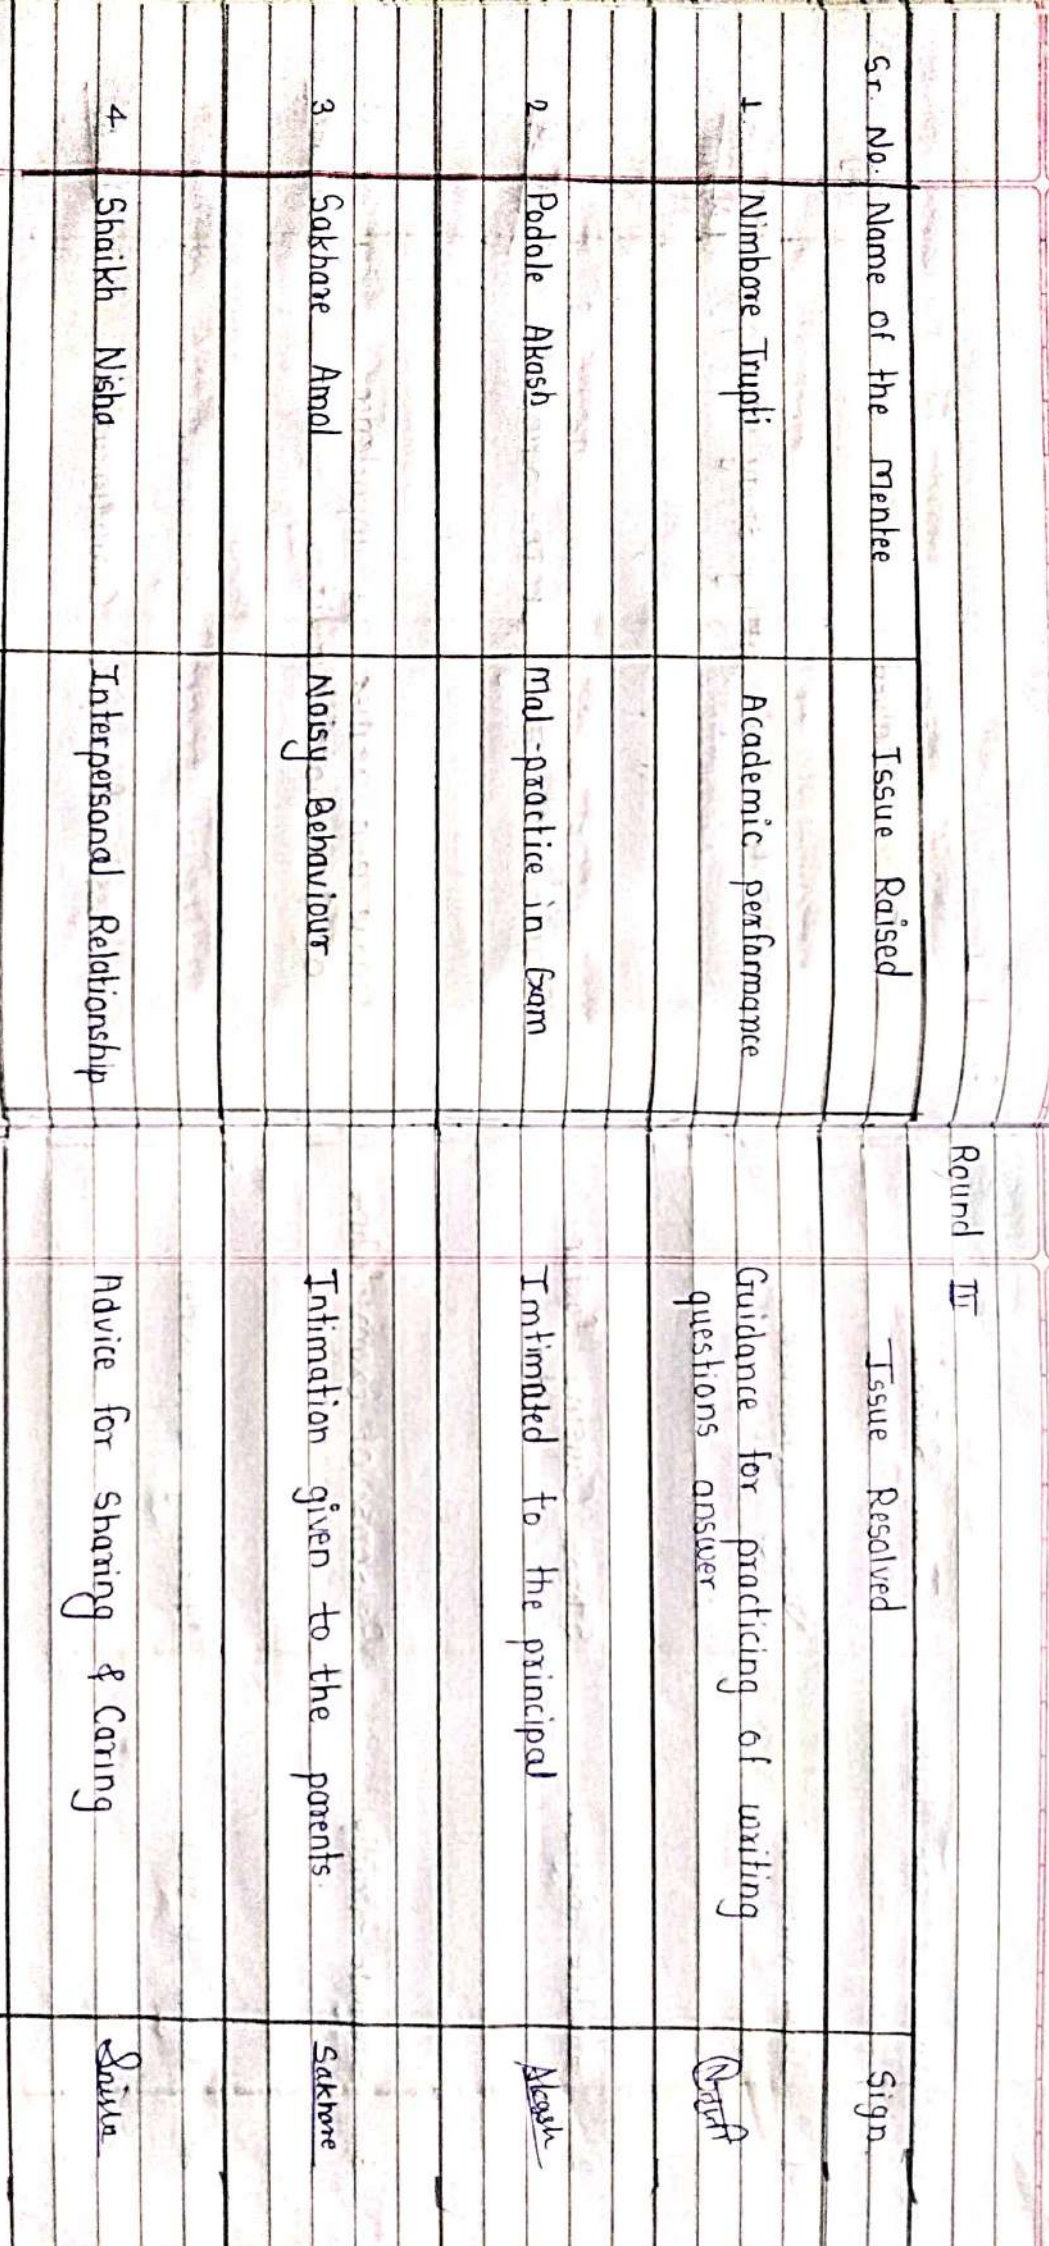 Round III
Sr. No. Name of the Mentee Issue Raised Issue Resolved Sign
1. Nimbore Trupti Academic performance Guidance for practicing of writing
questions answer.
2. Podole Akash Mal-practice in Exam Imtimated to the principal Akash
3. Sakhare Amol Noisy Behaviour Intimation given to the parents. Sakhare
4. Shaikh Nisha Interpersonal Relationship Advice for sharing & Caring